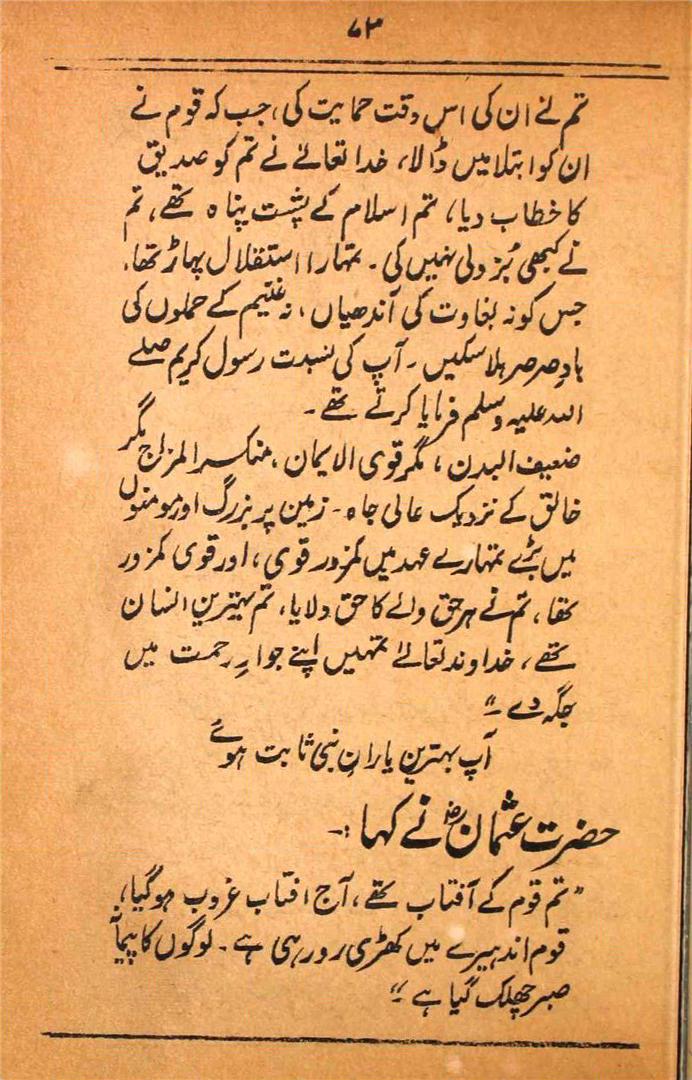 ۷۳
تم نے ان کی اس وقت حمایت کی، جب کہ قوم نے
ان کو ابتلا میں ڈالا، خدا تعالےٰ نے تم کو صدیق
کا خطاب دیا، تم اسلام کے پشت پناہ تھے، تم
نے کبھی بُزدلی نہیں کی۔ تمہارا استقلال پہاڑ تھا،
جس کو نہ بغاوت کی آندھیاں، نہ غنیم کے حملوں کی
بادِ صرصر ہلا سکیں۔ آپ کی نسبت رسول کریم صلے
اللہ علیہ وسلم فرمایا کرتے تھے۔
ضعیف البدن، مگر قوی الایمان، منکسر المزاج مگر
خالق کے نزدیک عالی جاہ۔ زمین پر بزرگ اور مومنوں
میں بڑے تمہارے عہد میں کمزور قوی، اور قوی کمزور
تھا، تم نے ہر حق والے کا حق دلایا، تم بہترین انسان
تھے، خداوند تعالےٰ تمہیں اپنے جوارِ رحمت میں
جگہ دے۔"
آپ بہترین یارانِ نبی ثابت ہوئے
حضرت عثمانؓ نے کہا:۔
"تم قوم کے آفتاب تھے، آج افتاب غروب ہو گیا،
قوم اندہیرے میں کھڑی رو رہی ہے۔ لوگوں کا پیمانۂ
صبر چھلک گیا ہے۔"